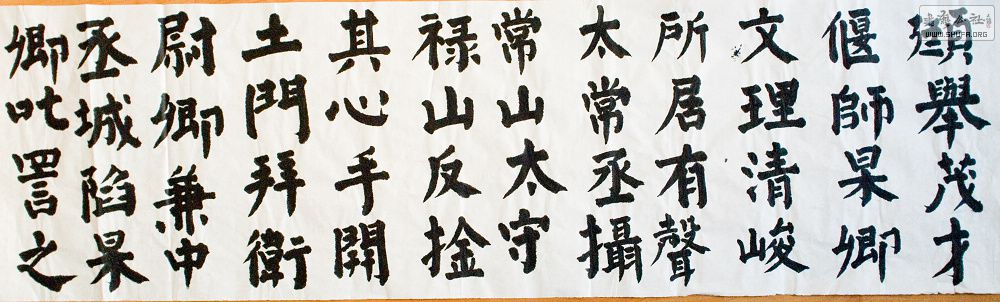 頲舉茂才
偃師杲卿
文理清峻
所居有聲
太常丞攝
常山太守
禄山反捦
其心手開
土門拜衛
尉卿兼中
丞城陷杲
卿叱詈之
WWW.SHUFA.ORG